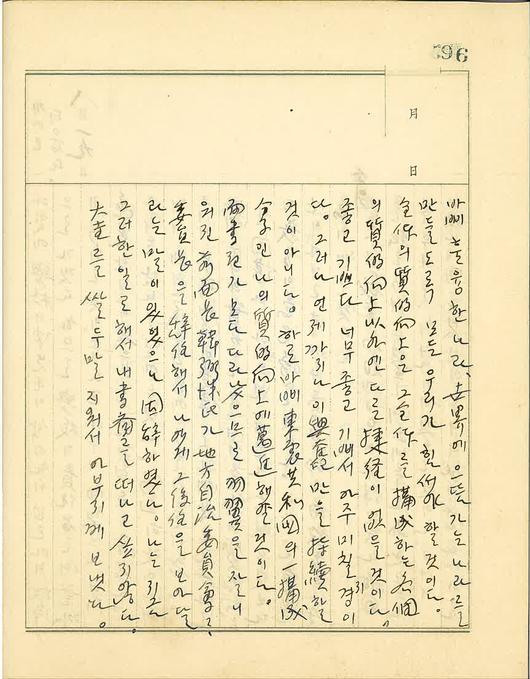 396
月 日
융한 나라, 世界에 으뜸가는 나라를
만들도록 모든 우리가 힘써야 할 것이다.
全体의 質的向上은 그 全体를 構成하는 各個
의 質的向上 以外엔 다른 捷徑이 없을 것이다.
좋고 기쁘다 너무 좋고 기뻐서 아주 미칠 지경이
다. 그러나 언제까지나 이 興奮만을 持續할
것이 아니다. 하로 아삐 共和国의 一構成
인 나의 質的向上에 邁進해야할 것이다.
面書記가 모다 다라났으므로 羽翼을 잘리
워진 前面長 韓弼洙氏가 地方自治委員會
委員長을 해서 나에게 그 後任을 보아달
라는 말이 있었으나 固辭하였다. 나는 지금
그러한 일로 해서 내 書齋를 떠나고 싶지 않다.
쌀 두말 지워서 아부지께 보냈다.